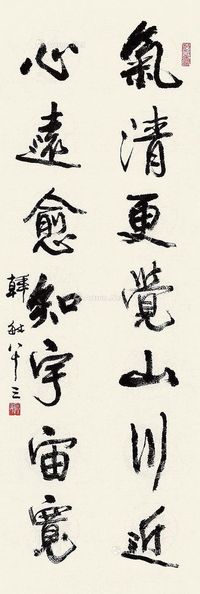 氣清更覺山川近
心遠愈知宇宙寬
韓敏八十三